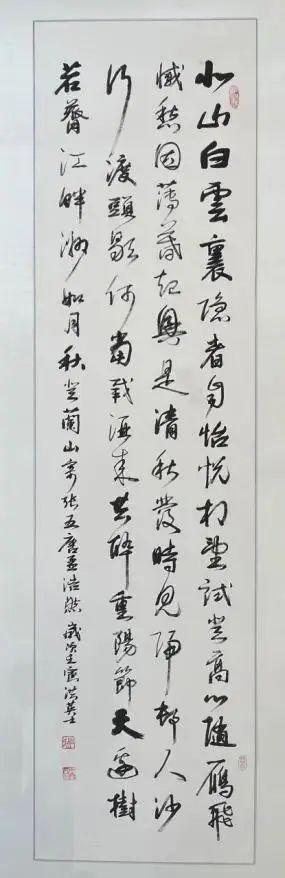 北山白雲裏隐者自怡悦相望試登高心随鴈飛
滅愁因薄暮起興是清秋發時見歸邨人沙
行渡頭歇何當載酒来共醉重陽節天邊樹
若薺江畔洲如月秋登蘭山寄张五唐孟浩然歲次壬寅洪英